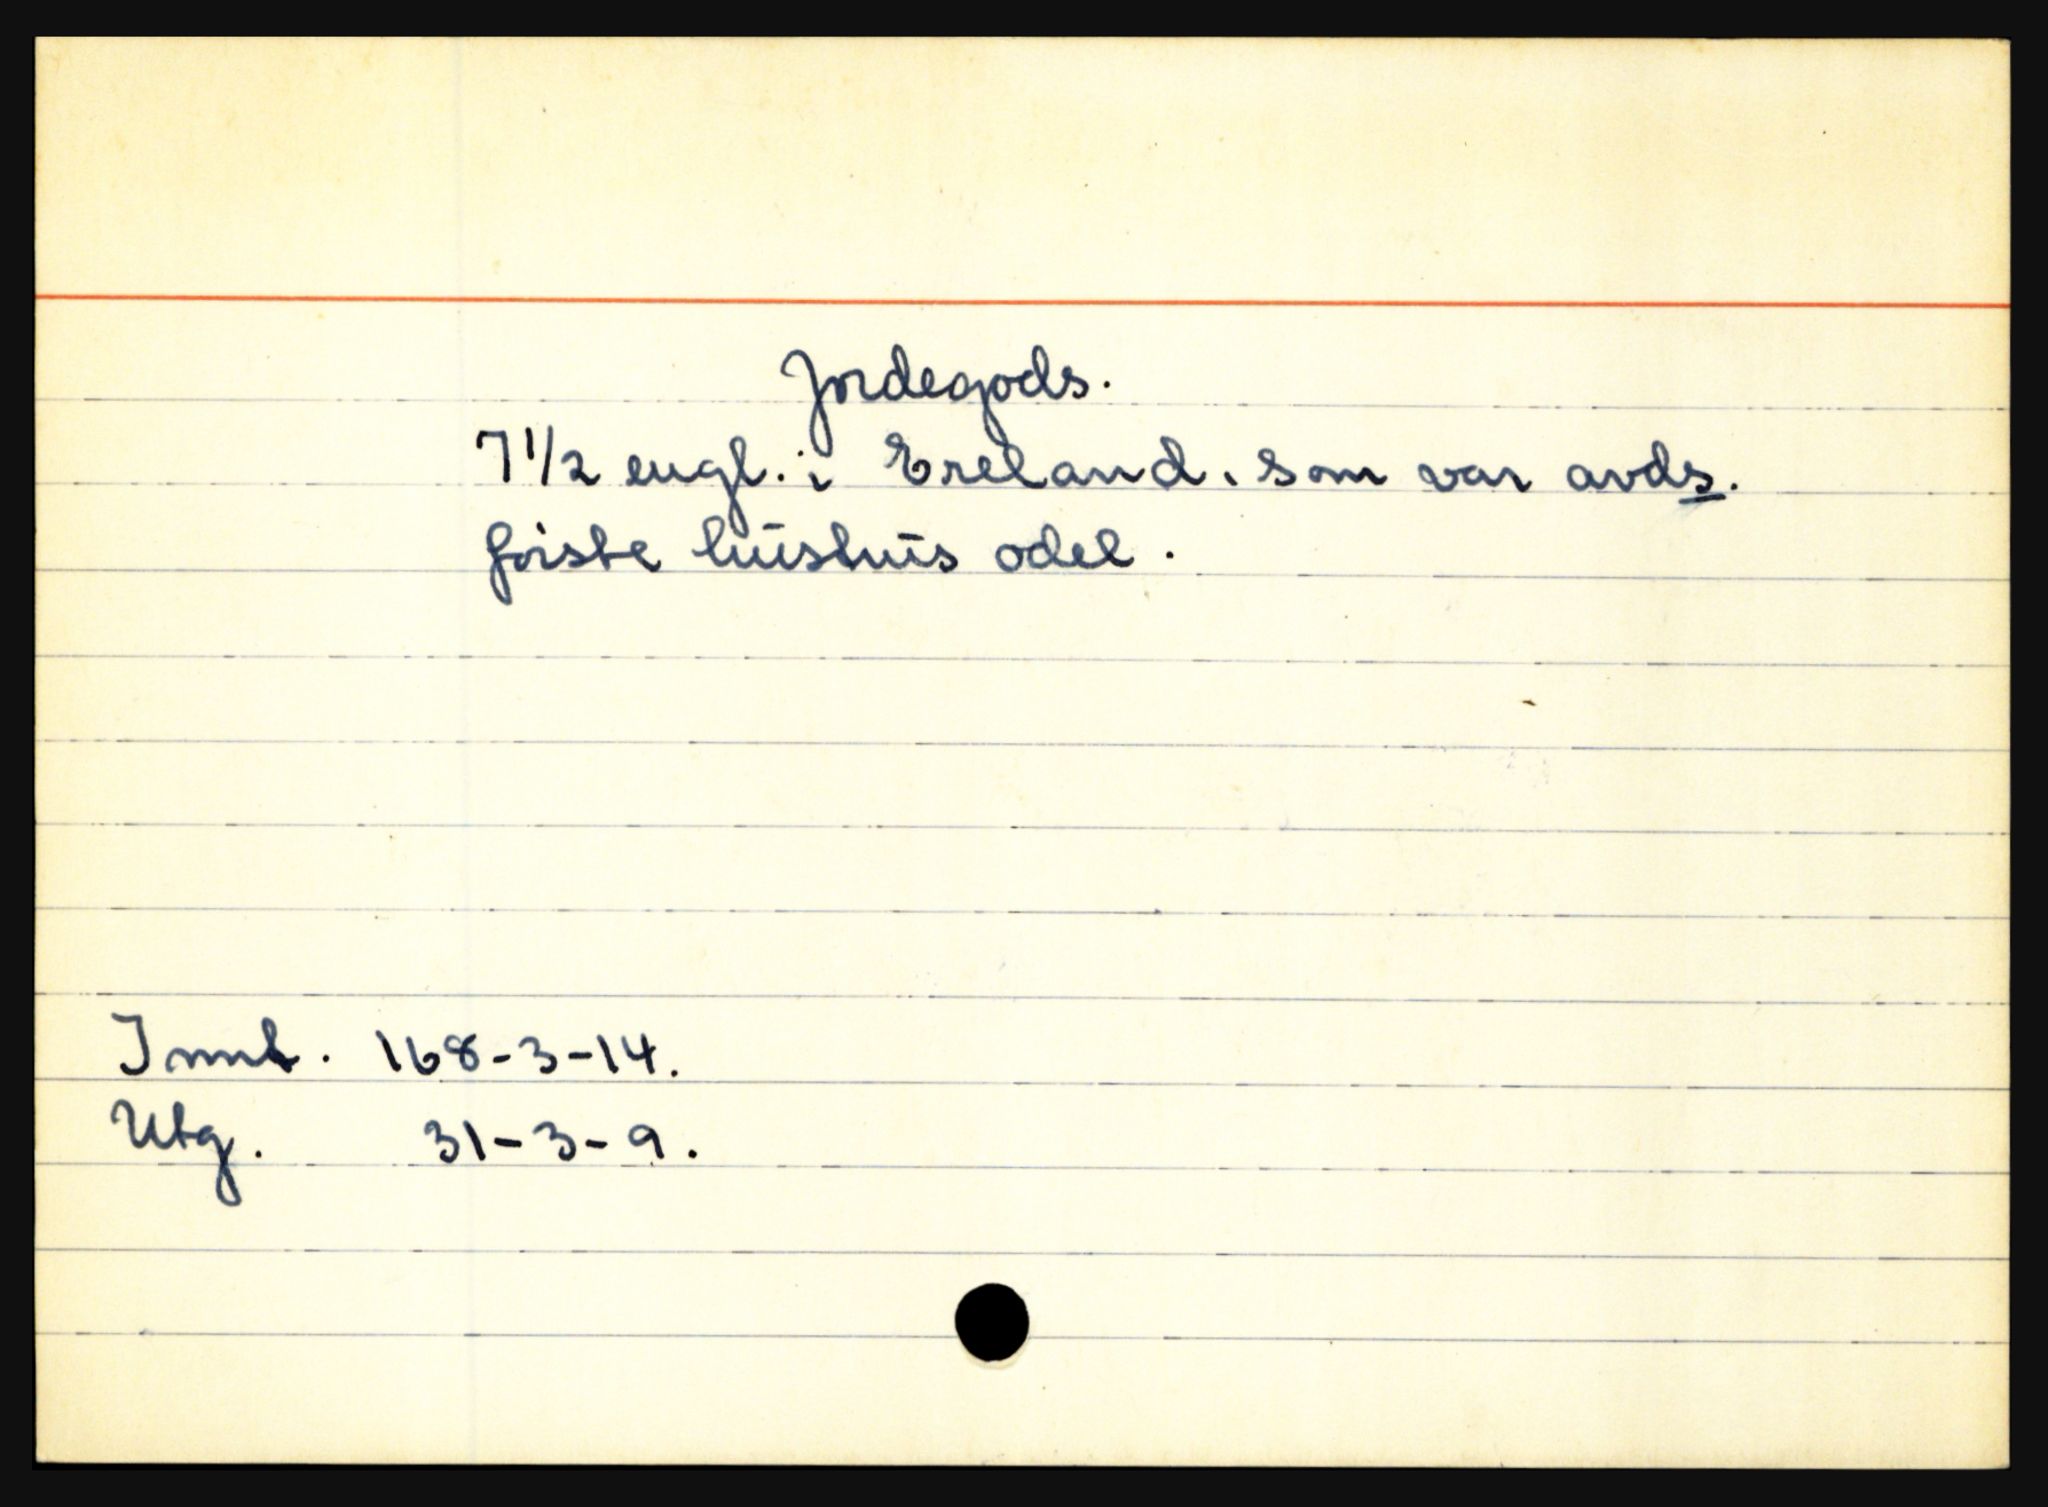 Jordegods.
7 1/2 engl. i Ereland, som var avds.
første hustrus odel.
Innt. 168-3-14.
Utg. 31-3-9.